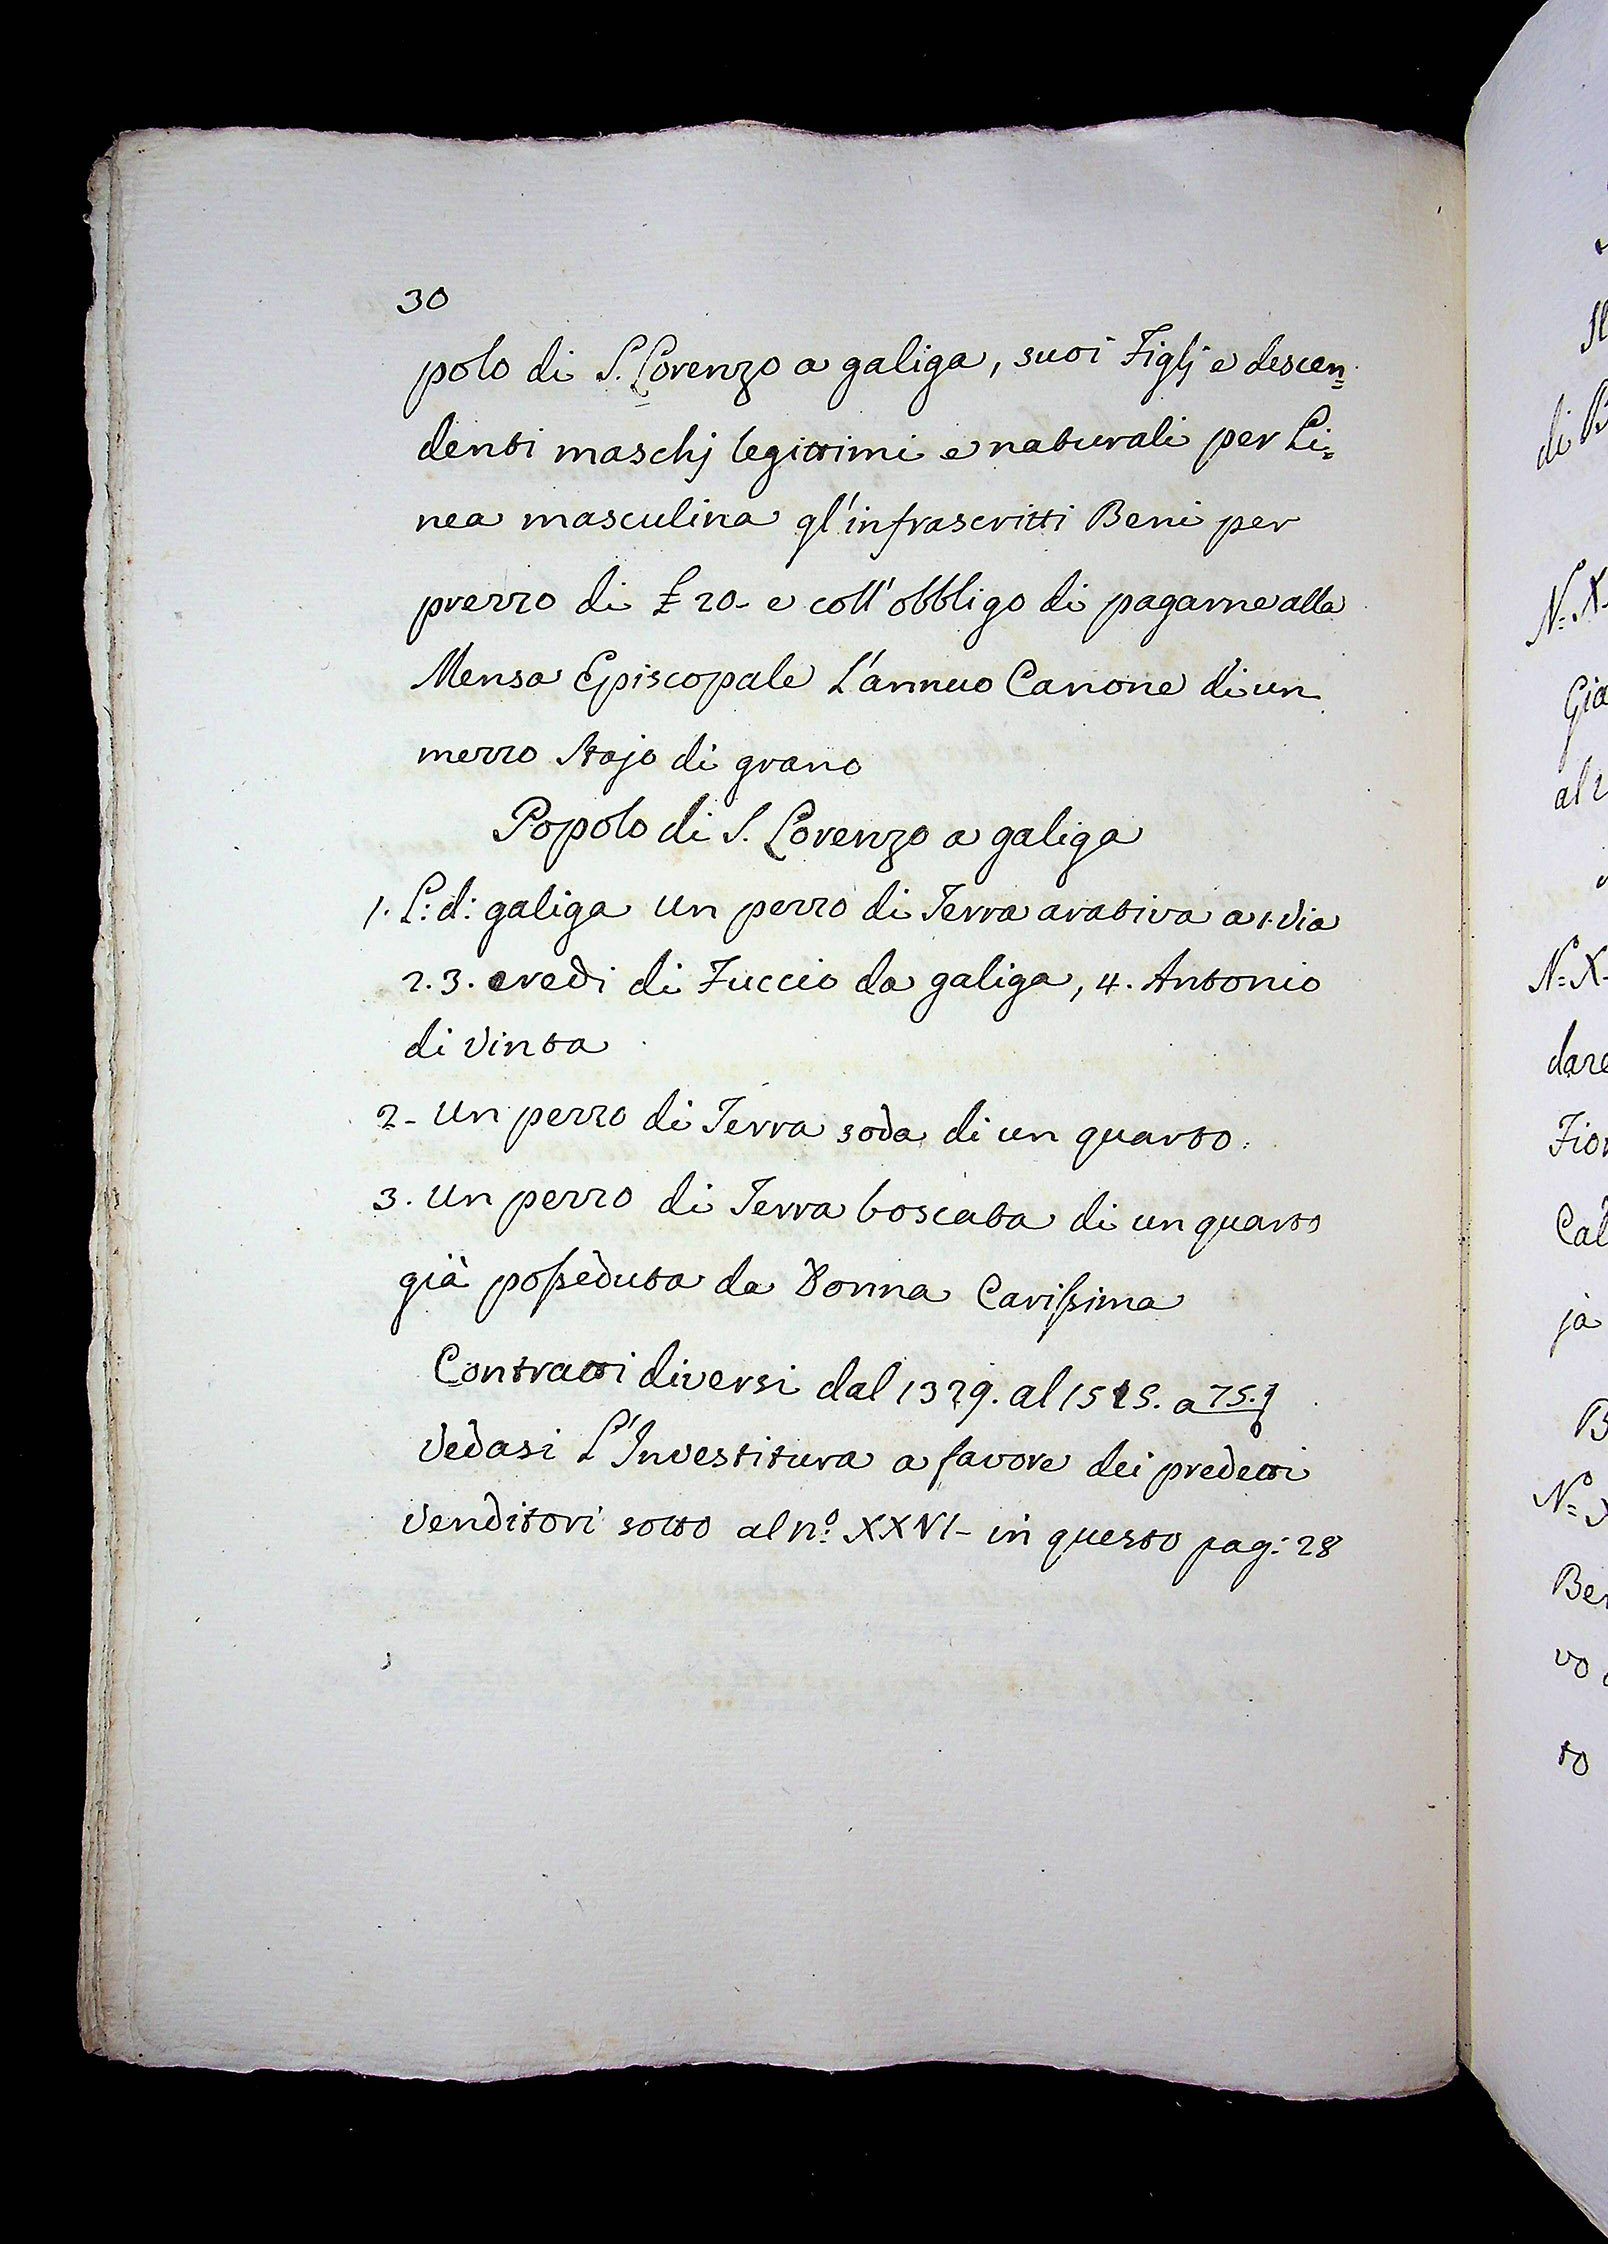 30
polo di S. Lorenzo a galiga, suoi Figlj e descen=
denti maschj legittimi e naturali per Li=
nea masculina gl'infrascritti Beni per
prezzo di £ 20- e coll'obbligo di pagarne alla
Mensa Episcopale L'annuo Canone di un
mezzo Stajo di grano
Popolo di S. Lorenzo a galiga
1. L: d: galiga un pezzo di Terra arativa a 1. via
2. 3. eredi di Fuccio da galiga, 4. Antonio
di Vinta
2- Un pezzo di Terra soda di un quarto.
3. Un pezzo di Terra boscata di un quarto
già posseduta da Donna Carissima
Contratti diversi dal 1329. al a 75.
Vedasi L'Investitura a favore dei predetti
Venditori sotto al nº. XXVI- in questo pag: 28
N: X
Gia
N: X-
dare
Fior
ja
B
Nº
vo
to